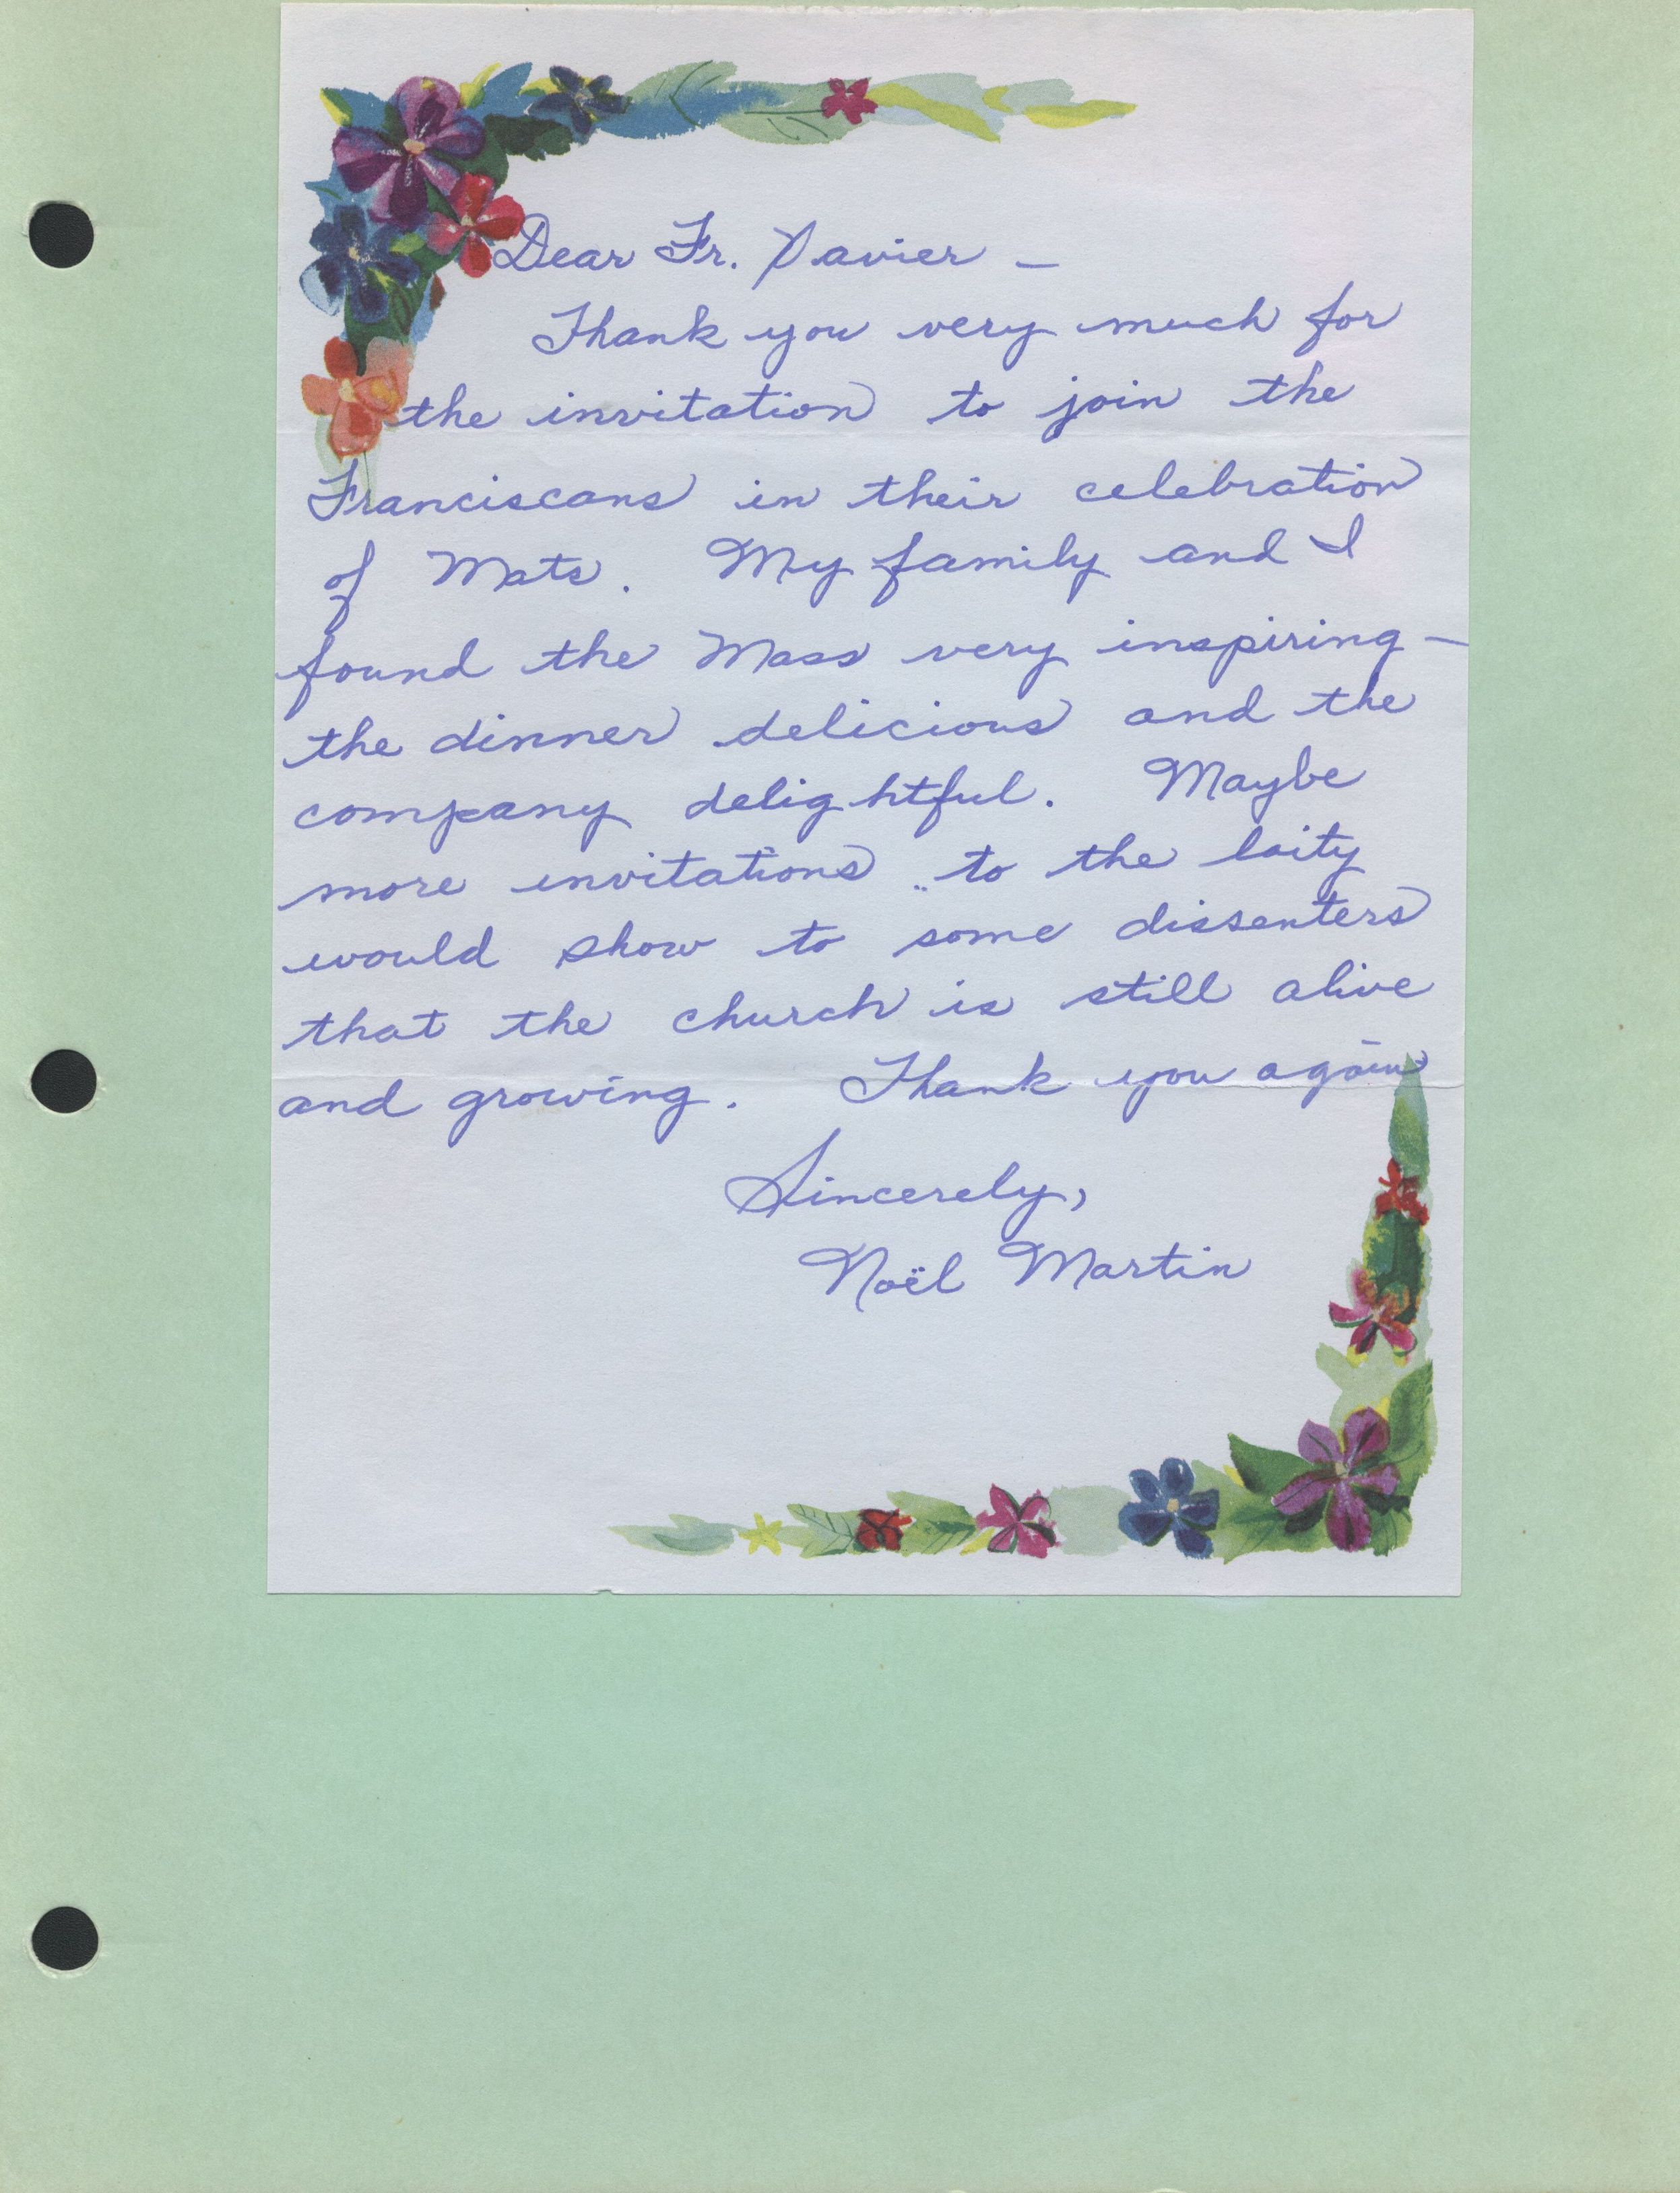 Dear Fr. Xavier —
Thank you very much for
the invitation to join the
Franciscans in their celebration
of Mats. My family and I
found the Mass very inspiring —
the dinner delicious and the
company delightful. Maybe
more invitations to the laity
would show to some dissenters
that the church is still alive
and growing. Thank you again
Sincerely,
Noël Martin